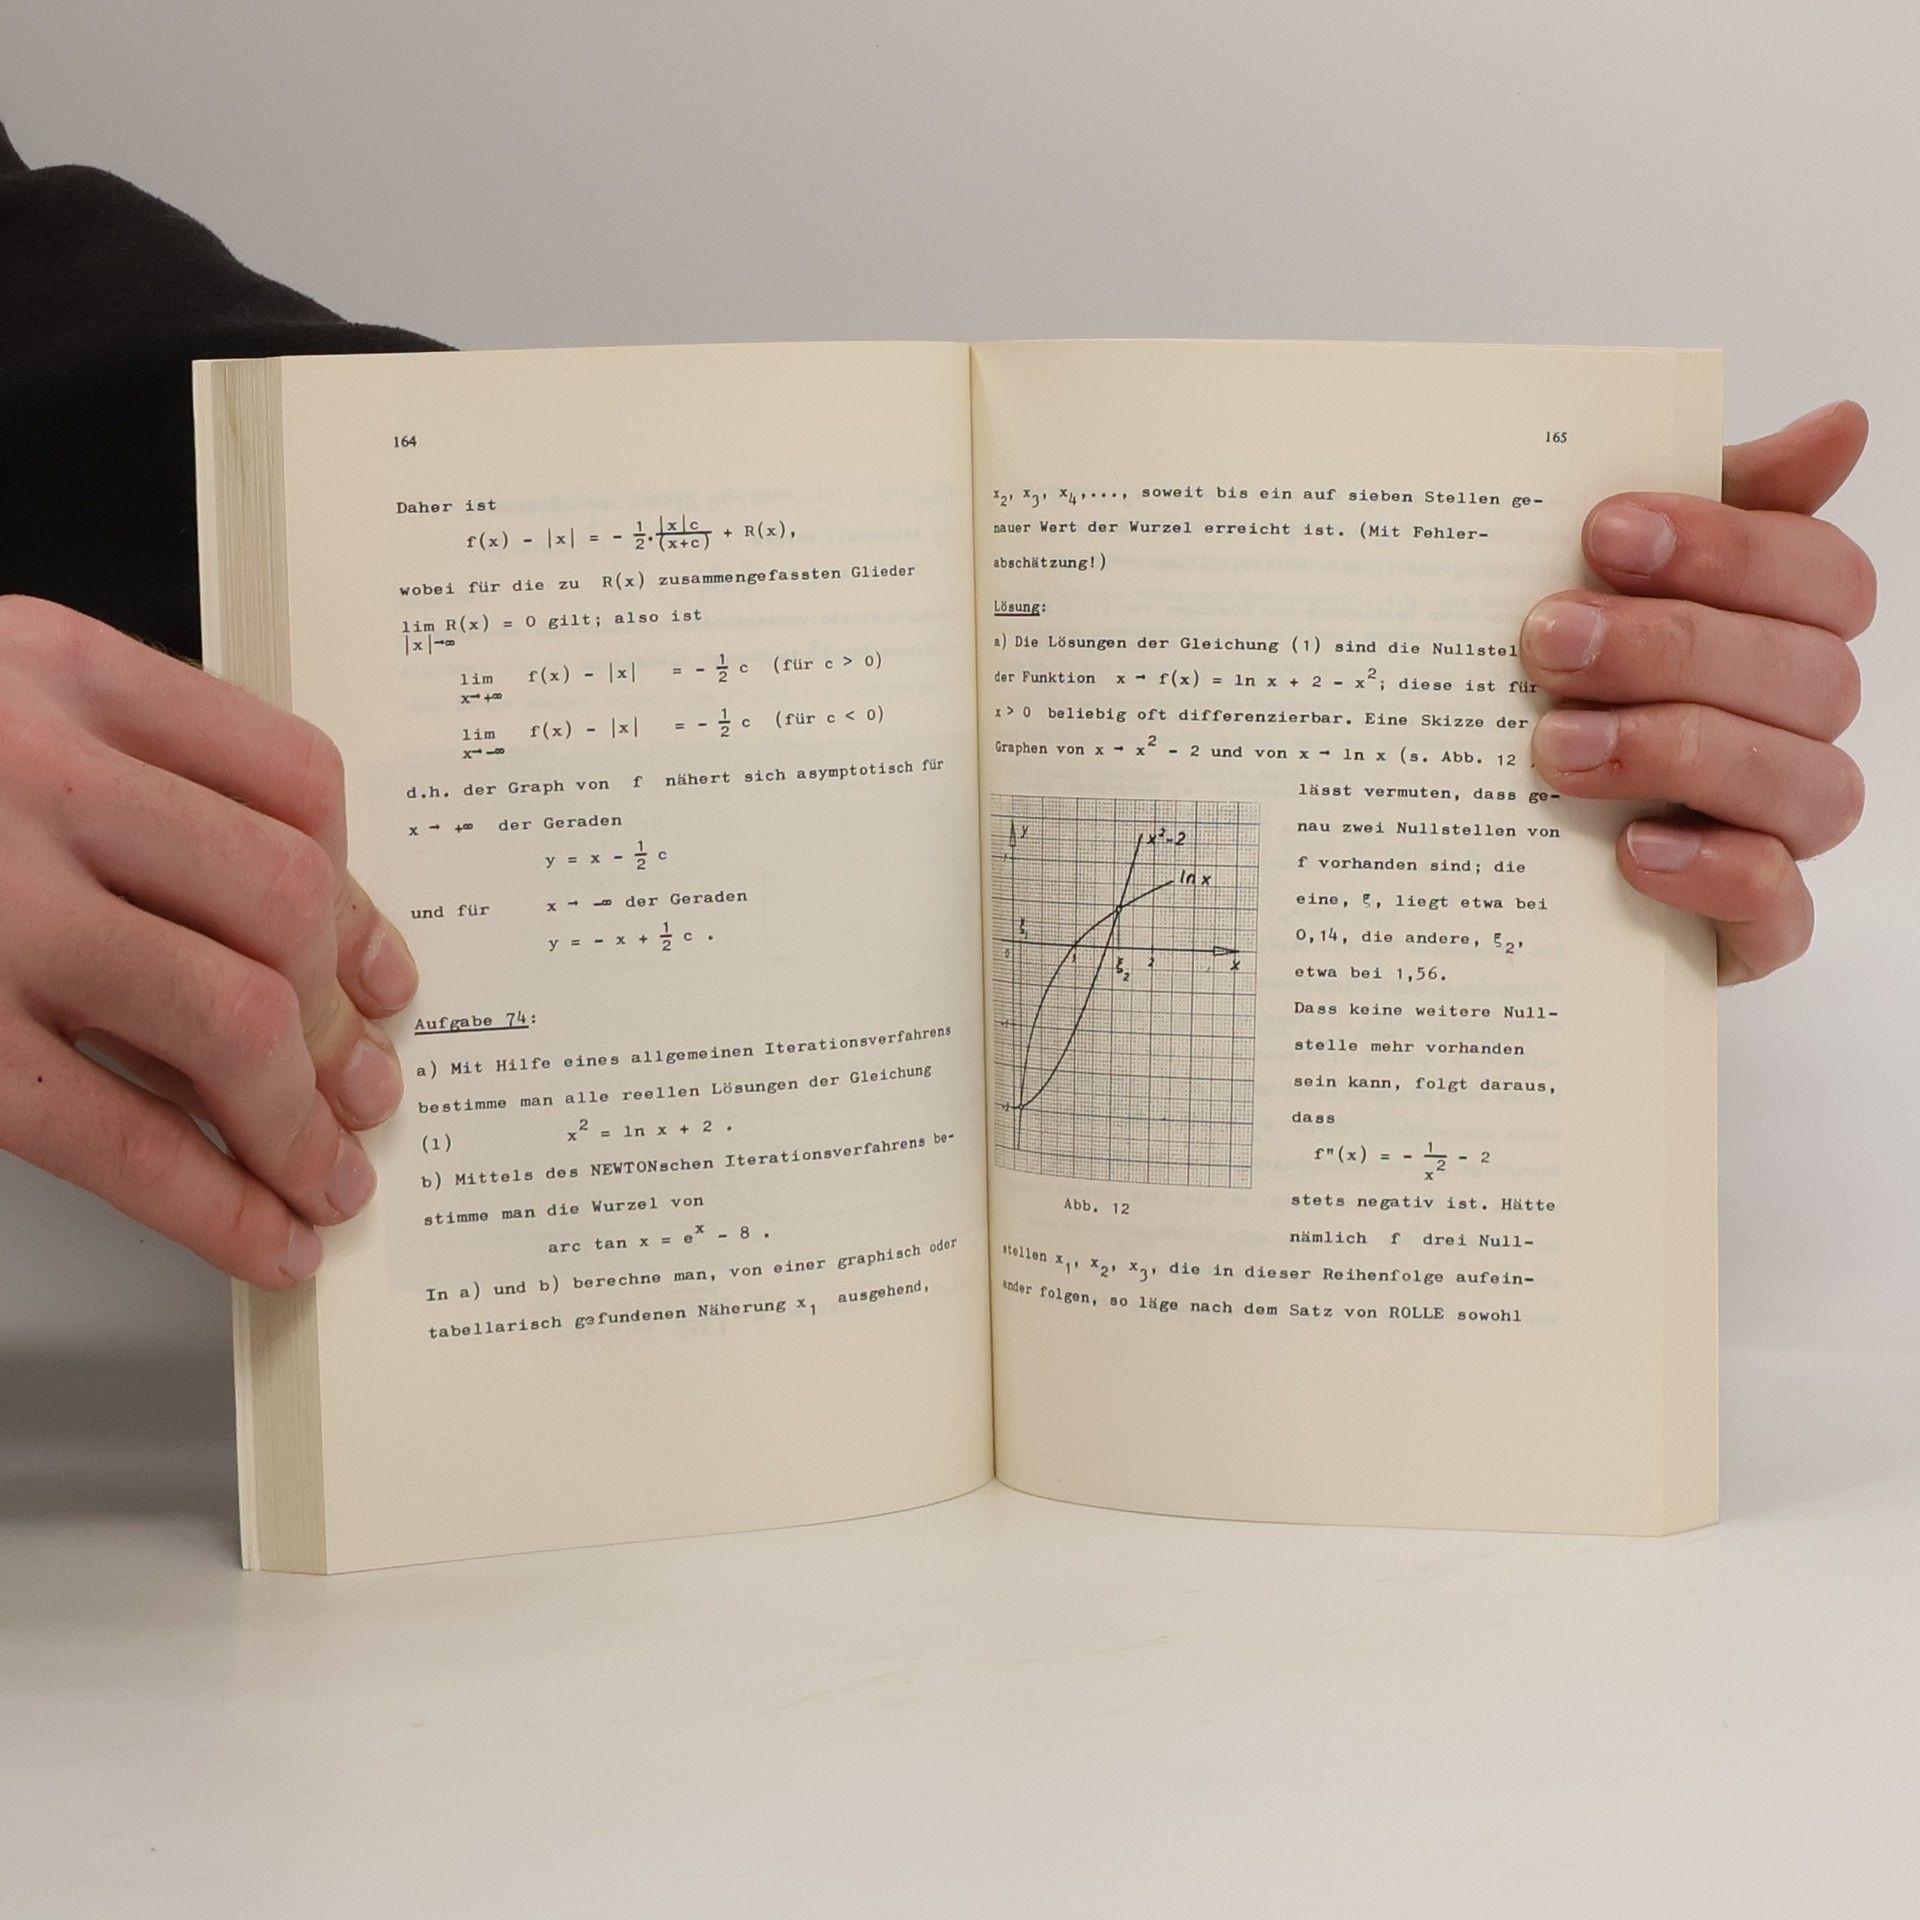 164
Daher ist
f(x) - |x| = - 1/2 · |x|c/(x+c) + R(x),
wobei für die zu R(x) zusammengefassten Glieder
lim R(x) = 0 gilt; also ist
|x|→∞
lim f(x) - |x| = - 1/2 c (für c > 0)
x→+∞
lim f(x) - |x| = - 1/2 c (für c < 0)
x→-∞
d.h. der Graph von f nähert sich asymptotisch für
x → +∞ der Geraden
y = x - 1/2 c
und für x → -∞ der Geraden
y = - x + 1/2 c .
Aufgabe 74:
a) Mit Hilfe eines allgemeinen Iterationsverfahrens
bestimme man alle reellen Lösungen der Gleichung
(1) x² = ln x + 2 .
b) Mittels des NEWTONschen Iterationsverfahrens be-
stimme man die Wurzel von
arc tan x = eˣ - 8 .
In a) und b) berechne man, von einer graphisch oder
tabellarisch gefundenen Näherung x₁ ausgehend,
165
x₂, x₃, x₄,..., soweit bis ein auf sieben Stellen ge-
nauer Wert der Wurzel erreicht ist. (Mit Fehler-
abschätzung!)
Lösung:
a) Die Lösungen der Gleichung (1) sind die Nullstel
der Funktion x → f(x) = ln x + 2 - x²; diese ist für
x > 0 beliebig oft differenzierbar. Eine Skizze der
Graphen von x → x² - 2 und von x → ln x (s. Abb. 12
lässt vermuten, dass ge-
nau zwei Nullstellen von
f vorhanden sind; die
eine, ξ, liegt etwa bei
0,14, die andere, ξ₂,
etwa bei 1,56.
Dass keine weitere Null-
stelle mehr vorhanden
sein kann, folgt daraus,
dass
f"(x) = - 1/x² - 2
stets negativ ist. Hätte
nämlich f drei Null-
y
x²-2
ln x
ξ₁
0
1
ξ₂
2
x
Abb. 12
stellen x₁, x₂, x₃, die in dieser Reihenfolge aufein-
ander folgen, so läge nach dem Satz von ROLLE sowohl